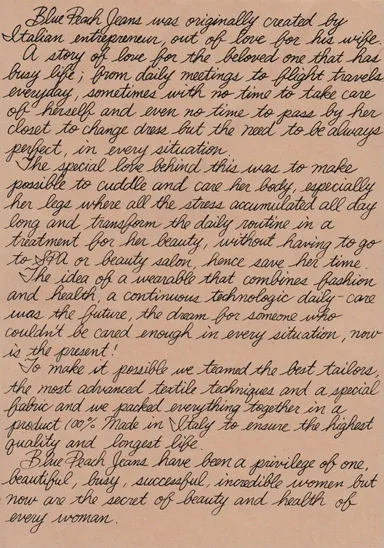 Blue Peach Jeans was originally created by
Italian entrepreneur, out of love for his wife.
A story of love for the beloved one that has
busy life; from daily meetings to flight travels
everyday, sometimes with no time to take care
of herself and even no time to pass by her
closet to change dress but the need to be always
perfect, in every situation.
The special love behind this was to make
possible to cuddle and care her body, especially
her legs where all the stress accumulated all day
long and transform the daily routine in a
treatment for her beauty, without having to go
to SPA or beauty salon, hence save her time.
The idea of a wearable that combines fashion
and health, a continuous technologic daily-care
was the future, the dream for someone who
couldn't be cared enough in every situation, now
is the present!
To make it possible we teamed the best tailors,
the most advanced textile techniques and a special
fabric and we packed everything together in a
product 100% Made in Italy to ensure the highest
quality and longest life.
Blue Peach Jeans have been a privilege of one,
beautiful, busy, successful, incredible women but
now are the secret of beauty and health of
every woman.